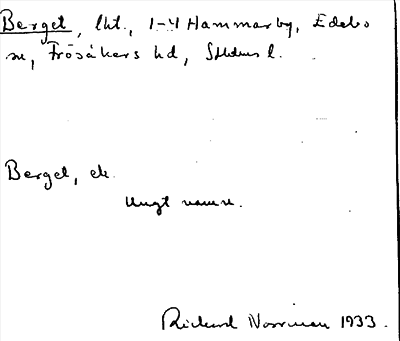 Berget, lht., 1-4 Hammarby, Edebo
sn, Frösåkers hd, Sthlms l.
Berget, ek.
Ungt namn.
Rickard Norrman 1933.